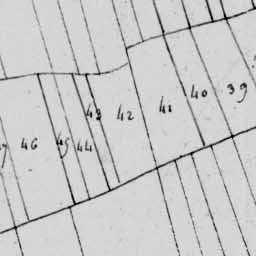 39
40
41
42
43
44
45
46